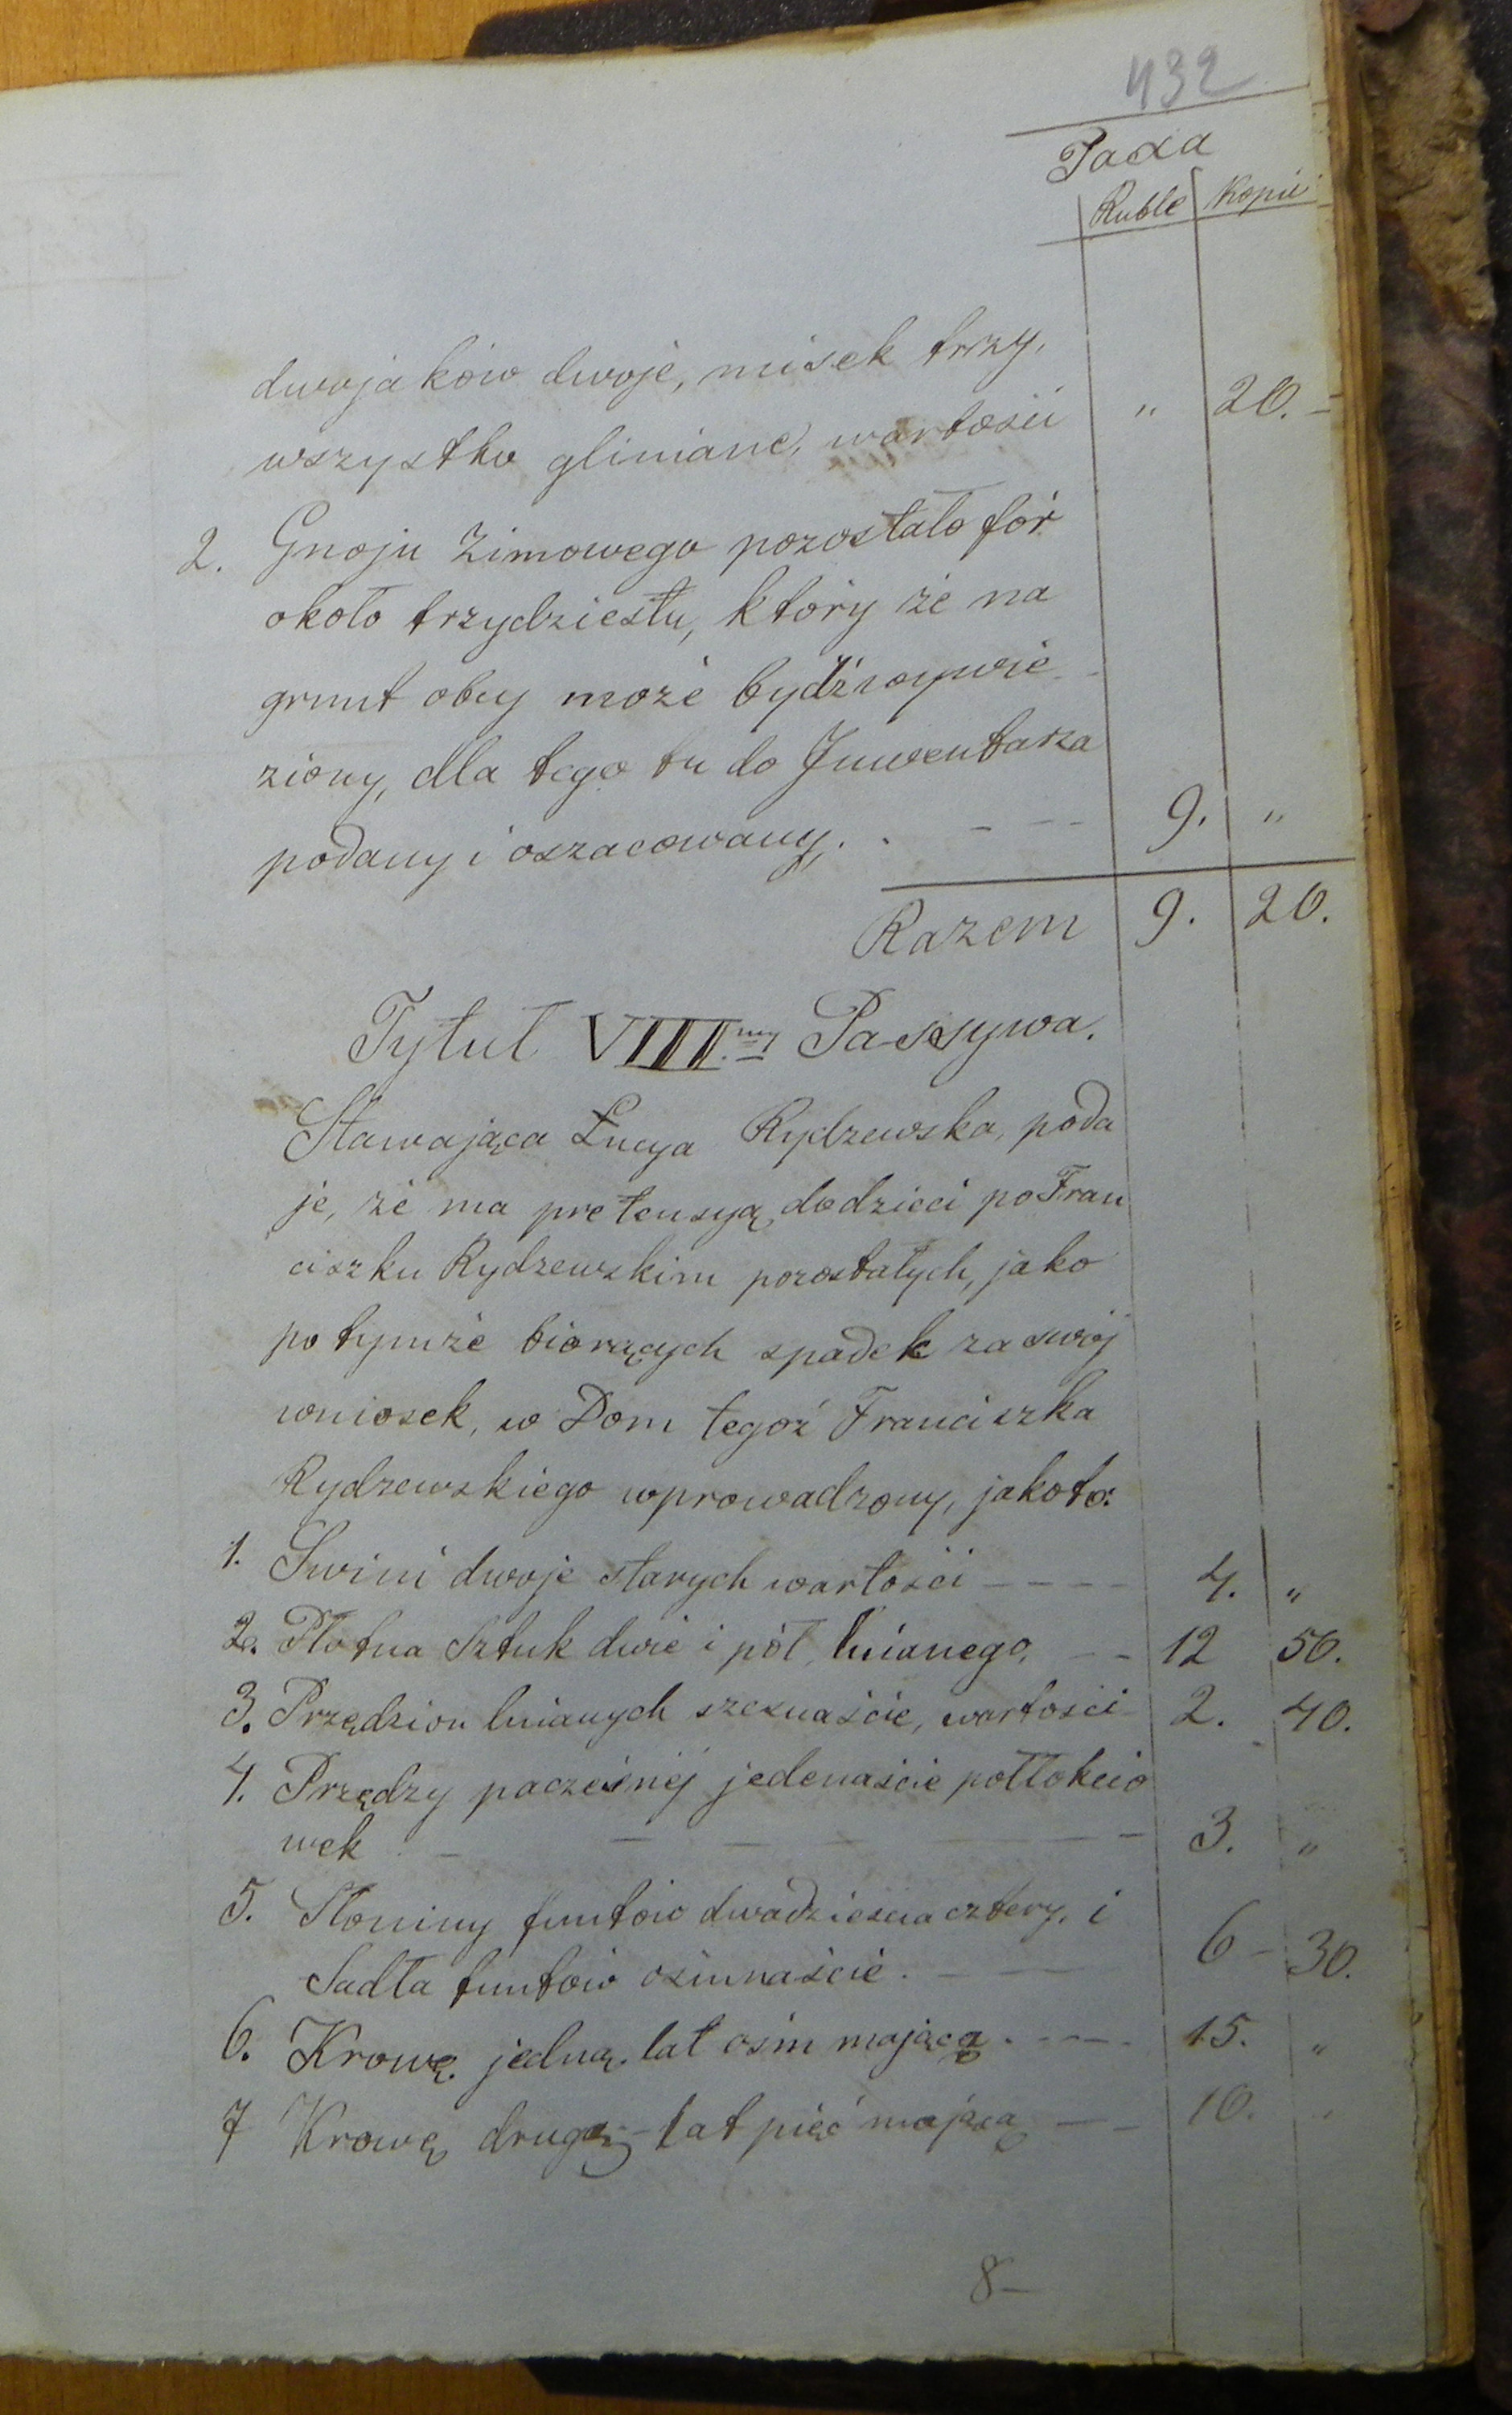 432
Taxa
Ruble Kopie
dwojaków dwoje, misek trzy,
wszystko gliniane, wartości " 20. –
2. Gnoju zimowego pozostało fór
około trzydziestu, który że na
grunt obcy może bydź wywie-
ziony, dla tego tu do Inwentarza
podany i oszacowany. . – – – 9. "
Razem 9. 20.
Tytuł VIII.my Passywa.
Stawająca Łucya Rydzewska, poda
je, że ma pretensyą do dzieci po Fran
ciszku Rydzewskim pozostałych, jako
po tymże biorących spadek za swój
wniosek, w Dom tegoż Franciszka
Rydzewskiego wprowadzony, jakoto:
1. Swini dwoje starych wartości – – – – 4. "
2. Płotna Sztuk dwie i pół, lnianego, – – 12 50.
3. Przędzion lnianych szesnaście, wartości – 2. 40.
4. Przędzy pacześnéj jedenaście półłokcio
wek . – – – – – – 3. "
5. Słoniny funtów dwadzieścia cztery, i
Sadła funtów ośmnaście . – – – 6 – 30.
6. Krowę jedną lat ośm mającą . – – – 15. "
7 Krowę drugą – lat pięć mającą – – 10. "
8 –